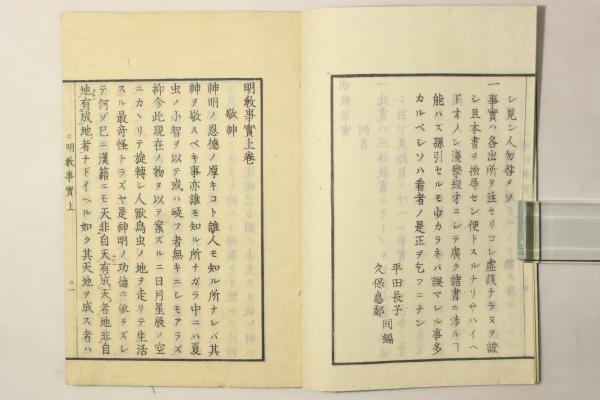 シ見ン人勿咎メソ
一事實ハ各出所ヲ注セリコレ虚談ナラヌヲ證
シ且本書ヲ撿尋セン便トスルナリサハイヘ
ドオノレ淺學短才ニシテ廣ク諸書ニ渉ルヿ
能ハズ孫引セルモ少カラネバ誤マレル事多
カルベシソハ看者ノ是正ヲ乞フニナン
平田長子
久保悳鄰 同編
明教事實上卷
敬神
神明ノ恩德ノ厚キコト誰人モ知ル所ナレバ其
神ヲ敬スベキ事亦誰モ知ル所ナガラ中ニハ夏
虫ノ小智ヲ以テ或ハ疑フ者無キニシモアラズ
抑今此現在ノ物ヲ以テ案ズルニ日月星辰ノ空
ニカヽリテ旋轉シ人獸鳥虫ノ地ヲ走リテ生活
スル最奇怪ナラズヤ是神明ノ功德ニ依ラズシ
テ何ゾ已ニ漢籍ニモ天非自天有成天者地非自
地有成地者ナドイヘル如ク其天地ヲ成ス者ハ
明教事實上
一